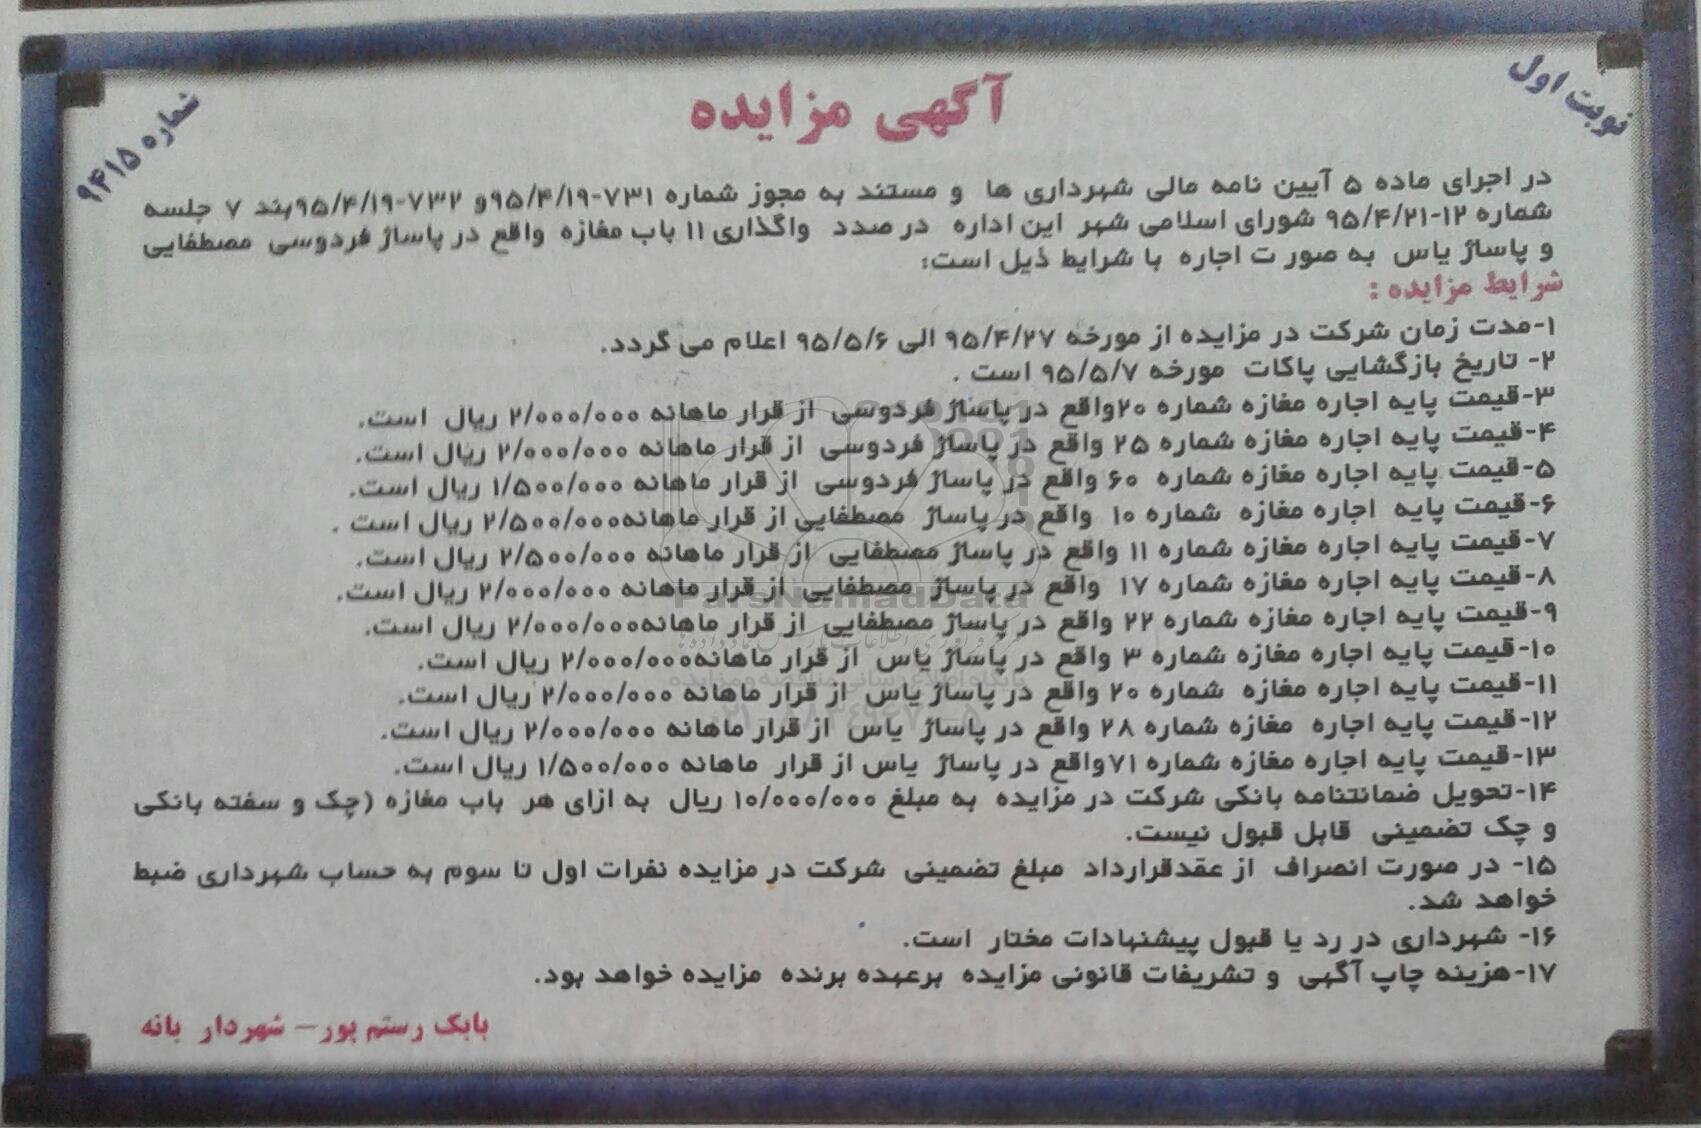 نوبت اول
آگهی مزایده
شماره ۹۴۱۵
در اجرای ماده ۵ آیین نامه مالی شهرداری ها و مستند به مجوز شماره ۷۳۱-۹۵/۴/۱۹و ۷۳۲-۹۵/۴/۱۹بند ۷ جلسه
شماره ۱۲-۹۵/۴/۲۱ شورای اسلامی شهر این اداره در صدد واگذاری ۱۱ باب مغازه واقع در پاساژ فردوسی مصطفایی
و پاساژ یاس به صورت اجاره با شرایط ذیل است:
شرایط مزایده :
۱-مدت زمان شرکت در مزایده از مورخه ۹۵/۴/۲۷ الی ۹۵/۵/۶ اعلام می گردد.
۲- تاریخ بازگشایی پاکات مورخه ۹۵/۵/۷ است .
۳-قیمت پایه اجاره مغازه شماره ۲۰واقع در پاساژ فردوسی از قرار ماهانه ۲/۰۰۰/۰۰۰ ریال است.
۴-قیمت پایه اجاره مغازه شماره ۲۵ واقع در پاساژ فردوسی از قرار ماهانه ۲/۰۰۰/۰۰۰ ریال است.
۵-قیمت پایه اجاره مغازه شماره ۶۰ واقع در پاساژ فردوسی از قرار ماهانه ۱/۵۰۰/۰۰۰ ریال است.
۶-قیمت پایه اجاره مغازه شماره ۱۰ واقع در پاساژ مصطفایی از قرار ماهانه۲/۵۰۰/۰۰۰ ریال است .
۷-قیمت پایه اجاره مغازه شماره ۱۱ واقع در پاساژ مصطفایی از قرار ماهانه ۲/۵۰۰/۰۰۰ ریال است.
۸-قیمت پایه اجاره مغازه شماره ۱۷ واقع در پاساژ مصطفایی از قرار ماهانه ۲/۰۰۰/۰۰۰ ریال است.
۹-قیمت پایه اجاره مغازه شماره ۲۲ واقع در پاساژ مصطفایی از قرار ماهانه۲/۰۰۰/۰۰۰ ریال است.
۱۰-قیمت پایه اجاره مغازه شماره ۳ واقع در پاساژ یاس از قرار ماهانه۲/۰۰۰/۰۰۰ ریال است.
۱۱-قیمت پایه اجاره مغازه شماره ۲۰ واقع در پاساژ یاس از قرار ماهانه ۲/۰۰۰/۰۰۰ ریال است.
۱۲-قیمت پایه اجاره مغازه شماره ۲۸ واقع در پاساژ یاس از قرار ماهانه ۲/۰۰۰/۰۰۰ ریال است.
۱۳-قیمت پایه اجاره مغازه شماره ۷۱واقع در پاساژ یاس از قرار ماهانه ۱/۵۰۰/۰۰۰ ریال است.
۱۴-تحویل ضمانتنامه بانکی شرکت در مزایده به مبلغ ۱۰/۰۰۰/۰۰۰ ریال به ازای هر باب مغازه (چک و سفته بانکی
و چک تضمینی قابل قبول نیست.
۱۵- در صورت انصراف از عقدقرارداد مبلغ تضمینی شرکت در مزایده نفرات اول تا سوم به حساب شهرداری ضبط
خواهد شد.
۱۶- شهرداری در رد یا قبول پیشنهادات مختار است.
۱۷-هزینه چاپ آگهی و تشریفات قانونی مزایده برعهده برنده مزایده خواهد بود.
بابک رستم پور– شهردار بانه
ParsNamadData
پایگاه اطلاع رسانی مناقصه و مزایده